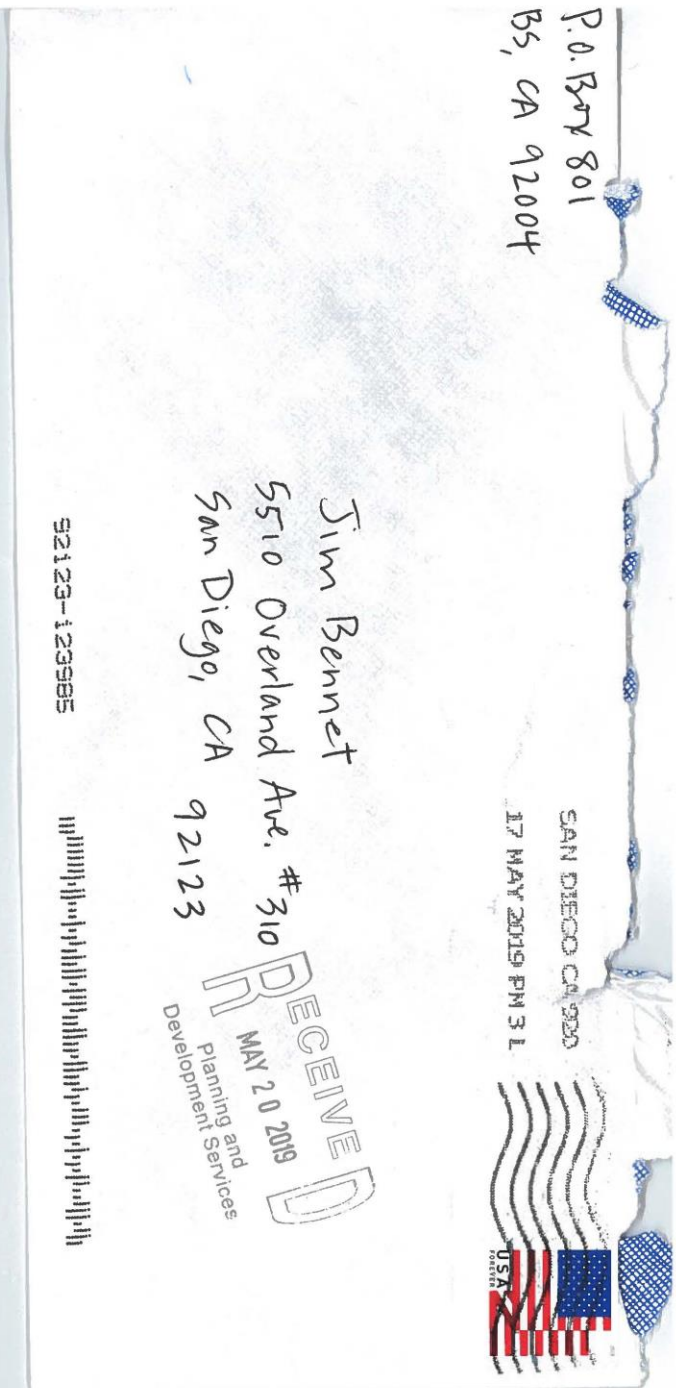 P.O. Box 801
BS, CA 92004
SAN DIEGO CA 920
17 MAY 2019 PM 3 L
USA
FOREVER
Jim Bennet
5510 Overland Ave. #310
San Diego, CA 92123
RECEIVED
MAY 20 2019
Planning and
Development Services
92123-123985